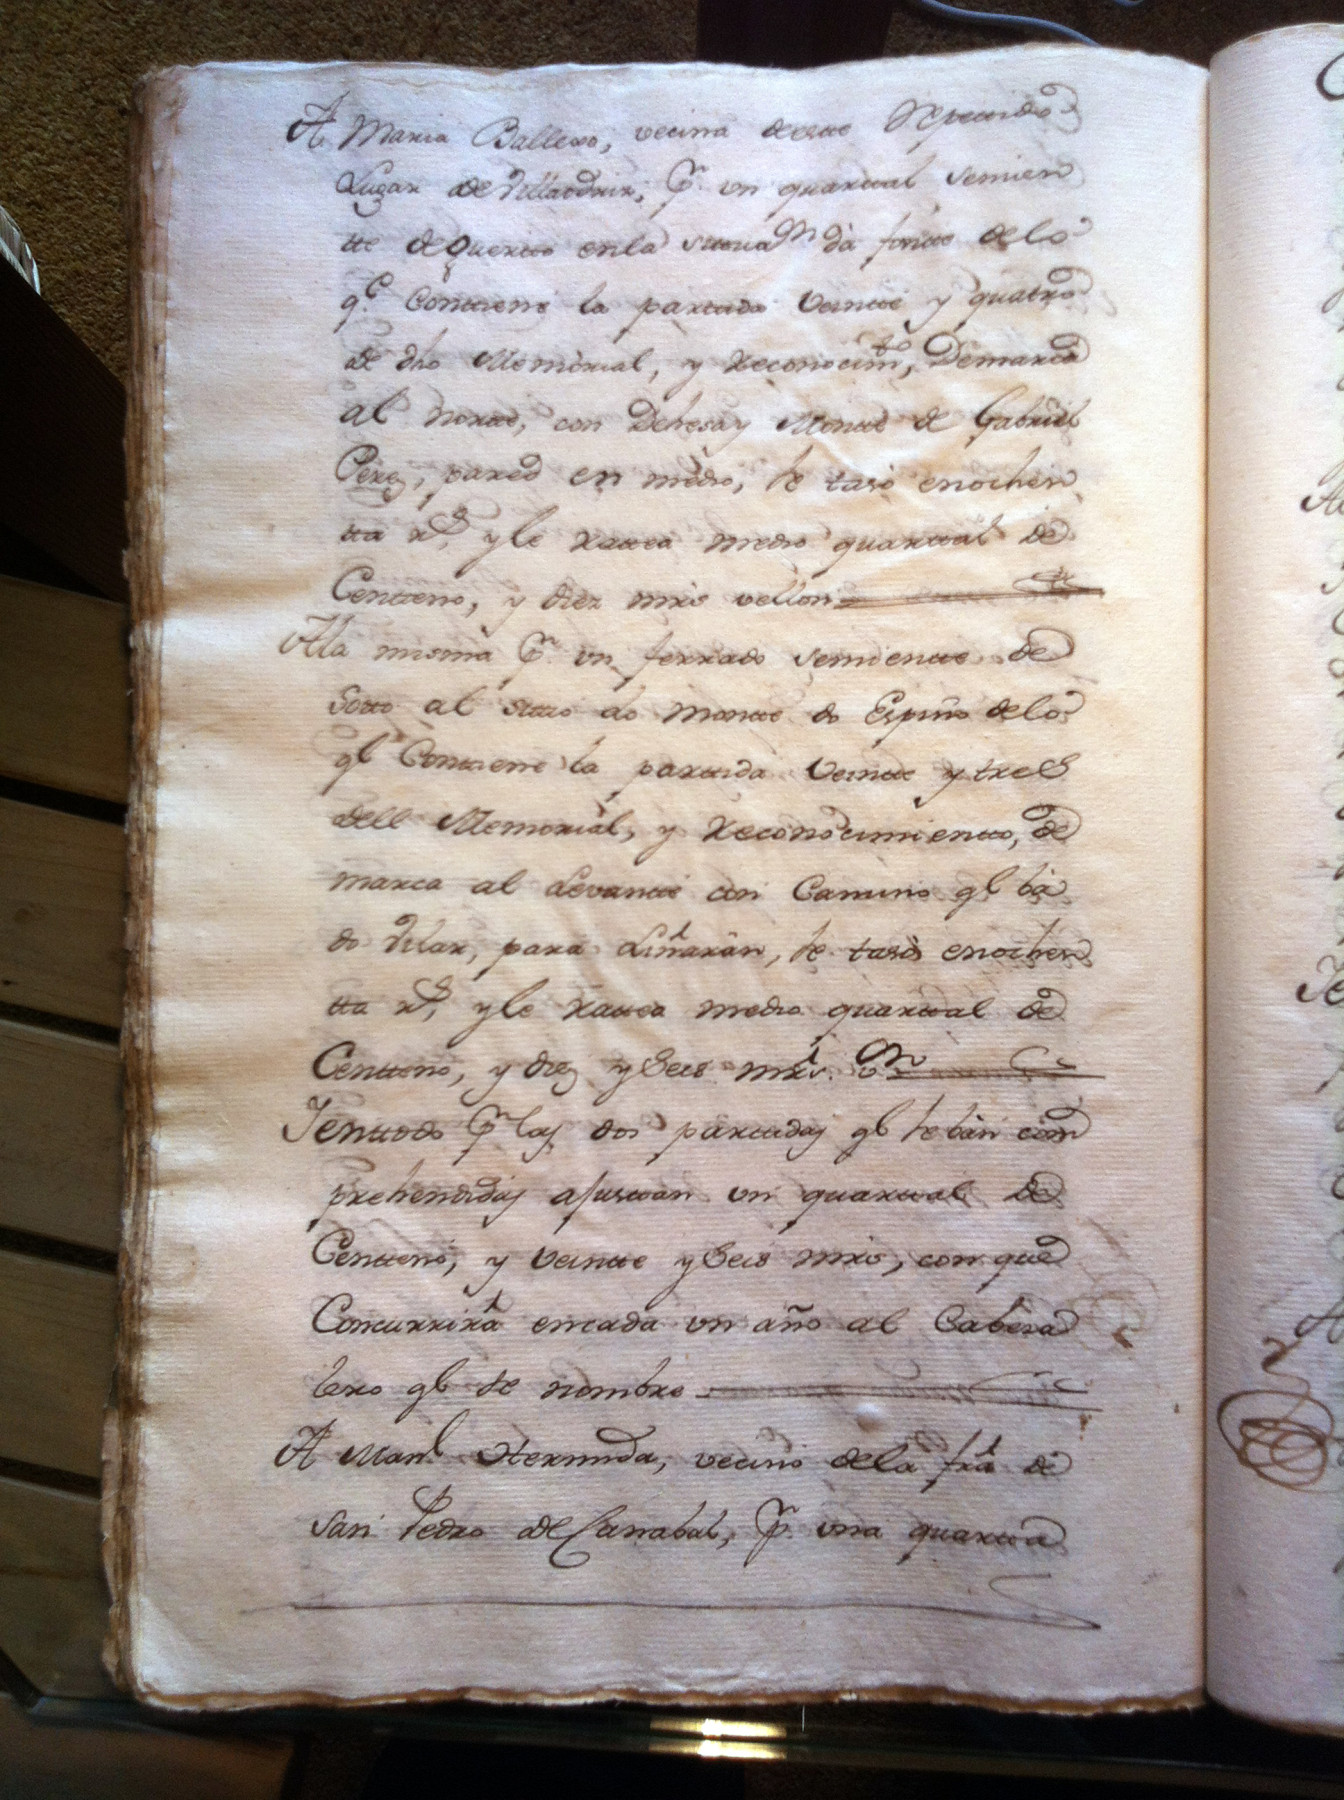 A Maria Ballero, vecina deeste Repetido
Lugar de Villaodriz, Pr. un quartal semien
tte de Querto en la sittuaon da fontte de lo
qe. Conttiene la parttida Veintte y quatro
de dho Memorial, y Reconocimto, Demarca
al nortte, con Dehesa y Montte de Gabriel
Perez, pared en medio, se tasó en ochen
tta rs, y le rattea medio quarttal de
Centteno, y diez mrs vellon
A la misma Pr. un ferrado semientte de
Sotto al sittio do Montte do Espiño de lo
qe Conttiene la parttida Veintte y tres
dell Memorial, y Reconocimientto, de
marca al Levantte con Camino qe bá
do Vilar, para Liñarán, se tasó en ochen
tta rs, y le rattea medio quarttal de
Centteno, y diez y Seis mrs. von
Ienttodo Pr las dos parttidas qe se bán com
prehendidas ajusttan un quarttal de
Centteno, y Veintte y Seis mrs, con que
Concurrirá encada un año al Cabeza
lero qe se nombre
A Manl Hermida, vecino de la fra de
San Pedro de Canabal, Pr. una quartta